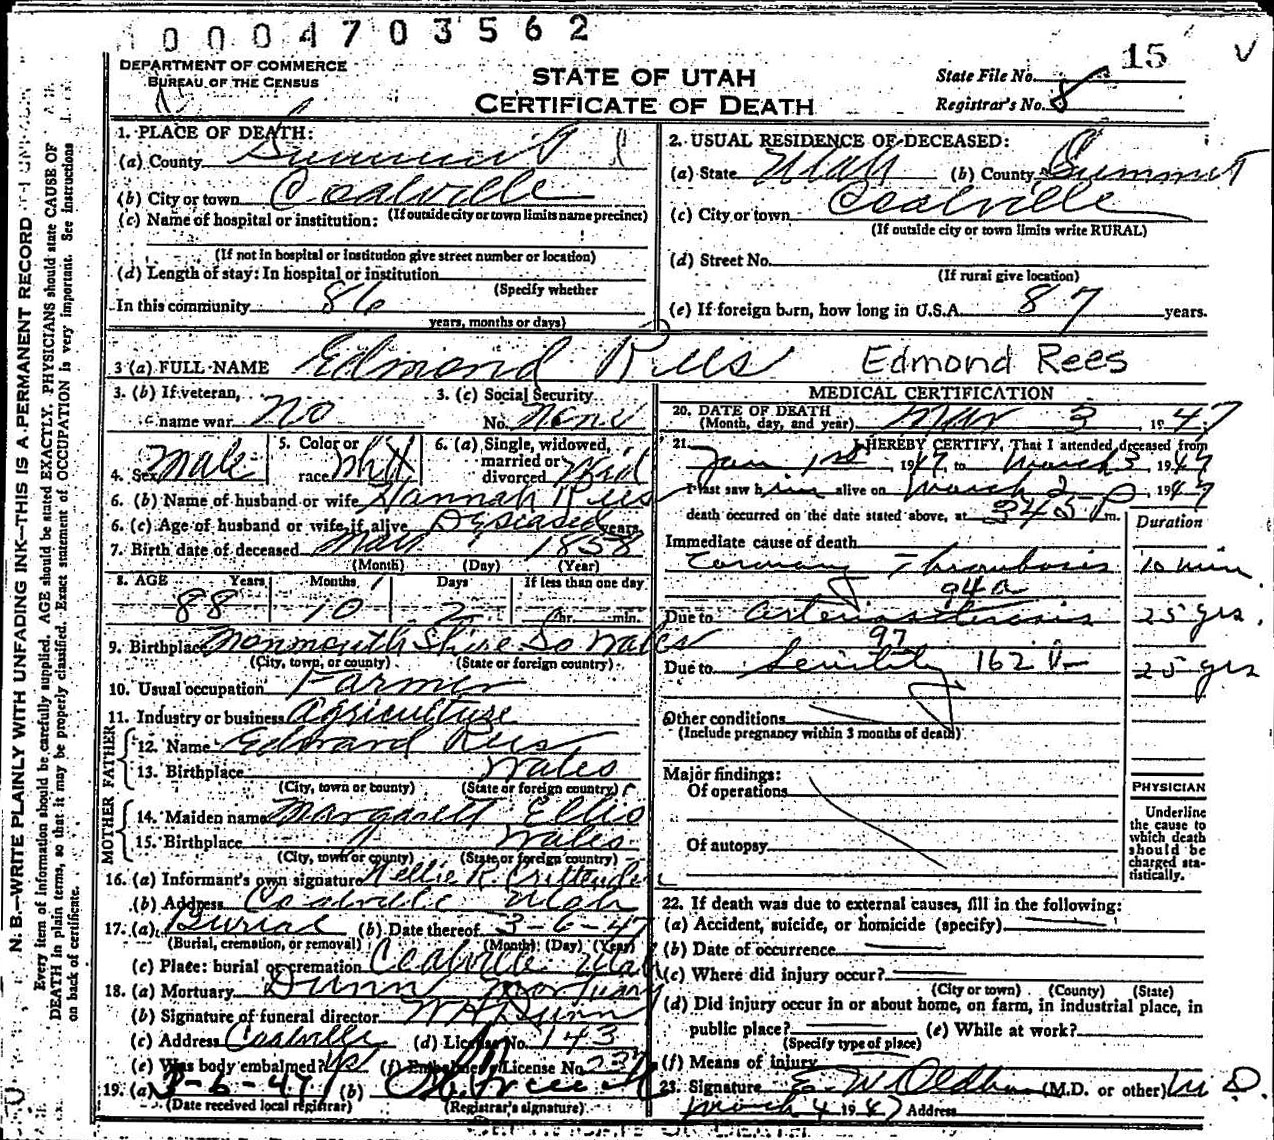 0004703562
15 V
DEPARTMENT OF COMMERCE
BUREAU OF THE CENSUS
STATE OF UTAH
CERTIFICATE OF DEATH
State File No.
Registrar's No. 8
1. PLACE OF DEATH:
(a) County Summit
(b) City or town Coalville
(c) Name of hospital or institution: (If outside city or town limits name precinct)
(If not in hospital or institution give street number or location)
(d) Length of stay: In hospital or institution
(Specify whether
In this community 86
years, months or days)
2. USUAL RESIDENCE OF DECEASED:
(a) State Utah (b) County Summit
(c) City or town Coalville
(If outside city or town limits write RURAL)
(d) Street No.
(If rural give location)
(e) If foreign born, how long in U.S.A. 87 years.
3 (a) FULL NAME Edmond Rees Edmond Rees
3. (b) If veteran, name war No
3. (c) Social Security No. None
4. Sex Male
5. Color or race Whit
6. (a) Single, widowed, married or divorced Wid
6. (b) Name of husband or wife Hannah Rees
6. (c) Age of husband or wife if alive Dyseased years
7. Birth date of deceased 1858
(Month) (Day) (Year)
8. AGE Years Months Days If less than one day
88 10 2 hr. min.
9. Birthplace Monmouth Shire So Wales
(City, town, or county) (State or foreign country)
10. Usual occupation Farmer
11. Industry or business Agriculture
FATHER
12. Name Edward Rees
13. Birthplace Wales
(City, town or county) (State or foreign country)
MOTHER
14. Maiden name Margarett Ellis
15. Birthplace Wales
(City, town or county) (State or foreign country)
16. (a) Informant's own signature Nellie R. Crittenden
(b) Address Coalville Utah
17. (a) Burial (b) Date thereof 3-6-47
(Burial, cremation, or removal) (Month) (Day) (Year)
(c) Place: burial or cremation Coalville Utah
18. (a) Mortuary Dunn Mortuary
(b) Signature of funeral director Dunn
(c) Address Coalville (d) License No. 143
(e) Was body embalmed? Yes (f) Embalmer License No. 237
19. (a) 3-6-47 (b)
(Date received local registrar) (Registrar's signature)
MEDICAL CERTIFICATION
20. DATE OF DEATH
(Month, day, and year) Mar 3 1947
21. I HEREBY CERTIFY, That I attended deceased from
Jan 1st 1947, to March 3, 1947
I last saw him alive on March 2 1947
death occurred on the date stated above, at 345 P m.
Duration
Immediate cause of death
Coronary Thrombosis 10 min.
94a
Due to arteriosclerosis 25 yrs.
97
Due to Senility 162 25 yrs
Other conditions
(Include pregnancy within 3 months of death)
Major findings:
Of operations
Of autopsy
PHYSICIAN
Underline
the cause to
which death
should be
charged sta-
tistically.
22. If death was due to external causes, fill in the following:
(a) Accident, suicide, or homicide (specify)
(b) Date of occurrence
(c) Where did injury occur?
(City or town) (County) (State)
(d) Did injury occur in or about home, on farm, in industrial place, in
public place? (e) While at work?
(Specify type of place)
(f) Means of injury
23. Signature E. W. Oldham (M.D. or other) M.D.
March 4 1947 Address
N. B.—WRITE PLAINLY WITH UNFADING INK—THIS IS A PERMANENT RECORD
Every item of information should be carefully supplied. AGE should be stated EXACTLY. PHYSICIANS should state CAUSE OF
DEATH in plain terms, so that it may be properly classified. Exact statement of OCCUPATION is very important. See instructions
on back of certificate.